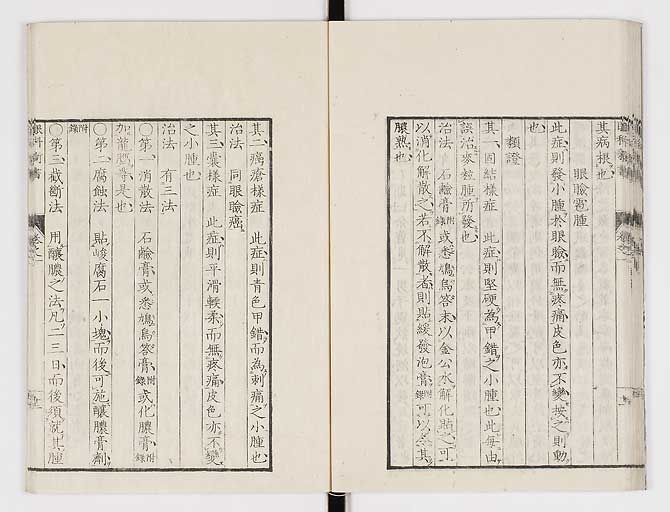 其病根也
眼瞼雹腫
此症則發小腫於眼瞼而無疼痛皮色亦不變按之則動
也
類證
其一固結樣症 此症則堅硬為甲錯之小腫也此每由
誤治麥粒腫所發也
治法 石鹼膏附錄或悉鳩烏答末以金公水解化貼之可
以消化解散之若不解散者則貼緩發泡膏附錄可以為其
膿熟也
其二癘瘡樣症 此症則青色甲錯而為刺痛之小腫也
治法 同眼瞼癌
其三囊樣症 此症則平滑軟柔而無疼痛皮色亦不變
之小腫也
治法 有三法
○第一消散法 石鹼膏或悉鳩烏答膏附錄或化膿膏附錄
加龍腦膏是也
○第二腐蝕法 貼峻腐石一小塊而後可施釀膿膏劑
附錄
○第三截斷法 用釀膿之法凡二三日而後須就其腫
眼科新書 卷之二